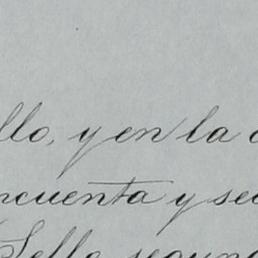 llo, y en la
ncuenta y se
Sello segun